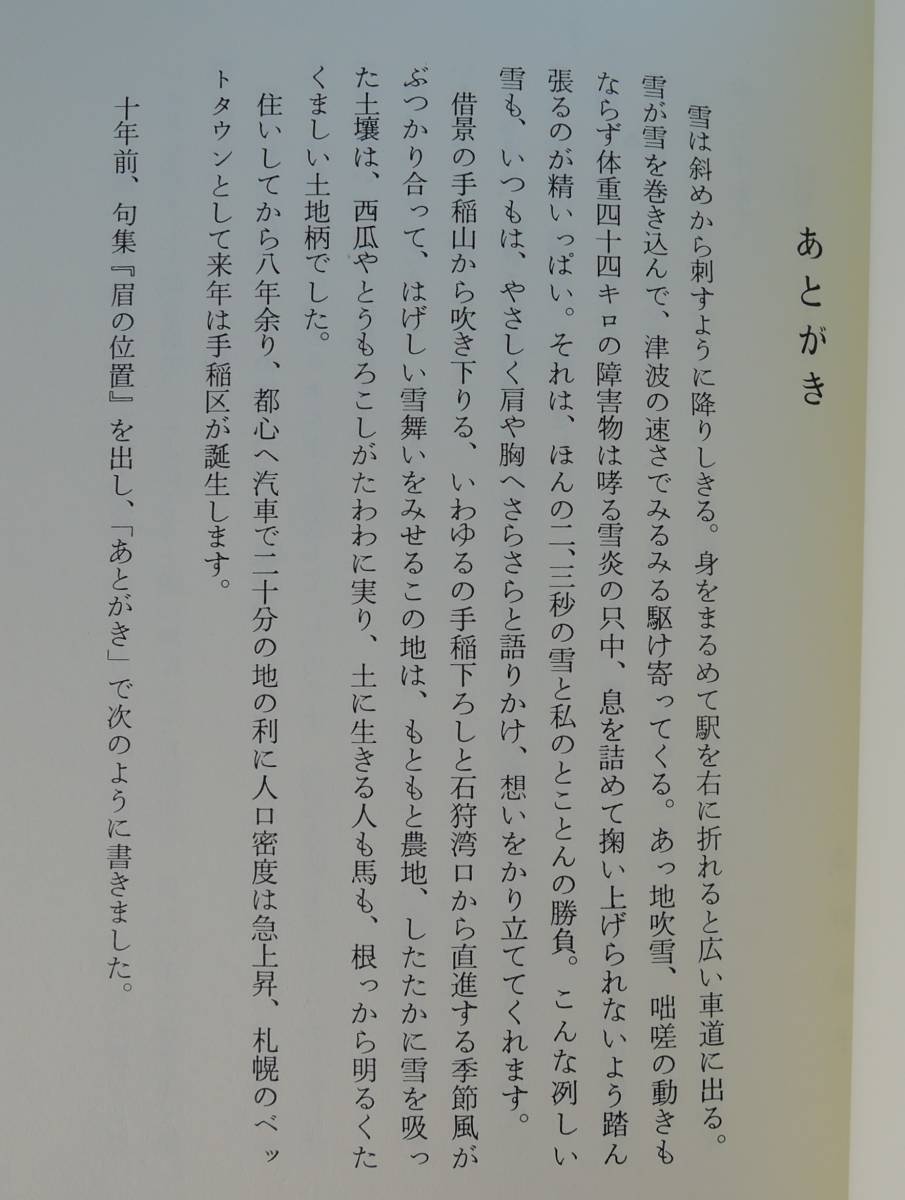 あとがき
雪は斜めから刺すように降りしきる。身をまるめて駅を右に折れると広い車道に出る。
雪が雪を巻き込んで、津波の速さでみるみる駆け寄ってくる。あっ地吹雪、咄嗟の動きも
ならず体重四十四キロの障害物は哮る雪炎の只中、息を詰めて掬い上げられないよう踏ん
張るのが精いっぱい。それは、ほんの二、三秒の雪と私のとことんの勝負。こんな冽しい
雪も、いつもは、やさしく肩や胸へさらさらと語りかけ、想いをかり立ててくれます。
借景の手稲山から吹き下りる、いわゆるの手稲下ろしと石狩湾口から直進する季節風が
ぶつかり合って、はげしい雪舞いをみせるこの地は、もともと農地、したたかに雪を吸っ
た土壌は、西瓜やとうもろこしがたわわに実り、土に生きる人も馬も、根っから明るくた
くましい土地柄でした。
住いしてから八年余り、都心へ汽車で二十分の地の利に人口密度は急上昇、札幌のベッ
トタウンとして来年は手稲区が誕生します。
十年前、句集『眉の位置』を出し、「あとがき」で次のように書きました。